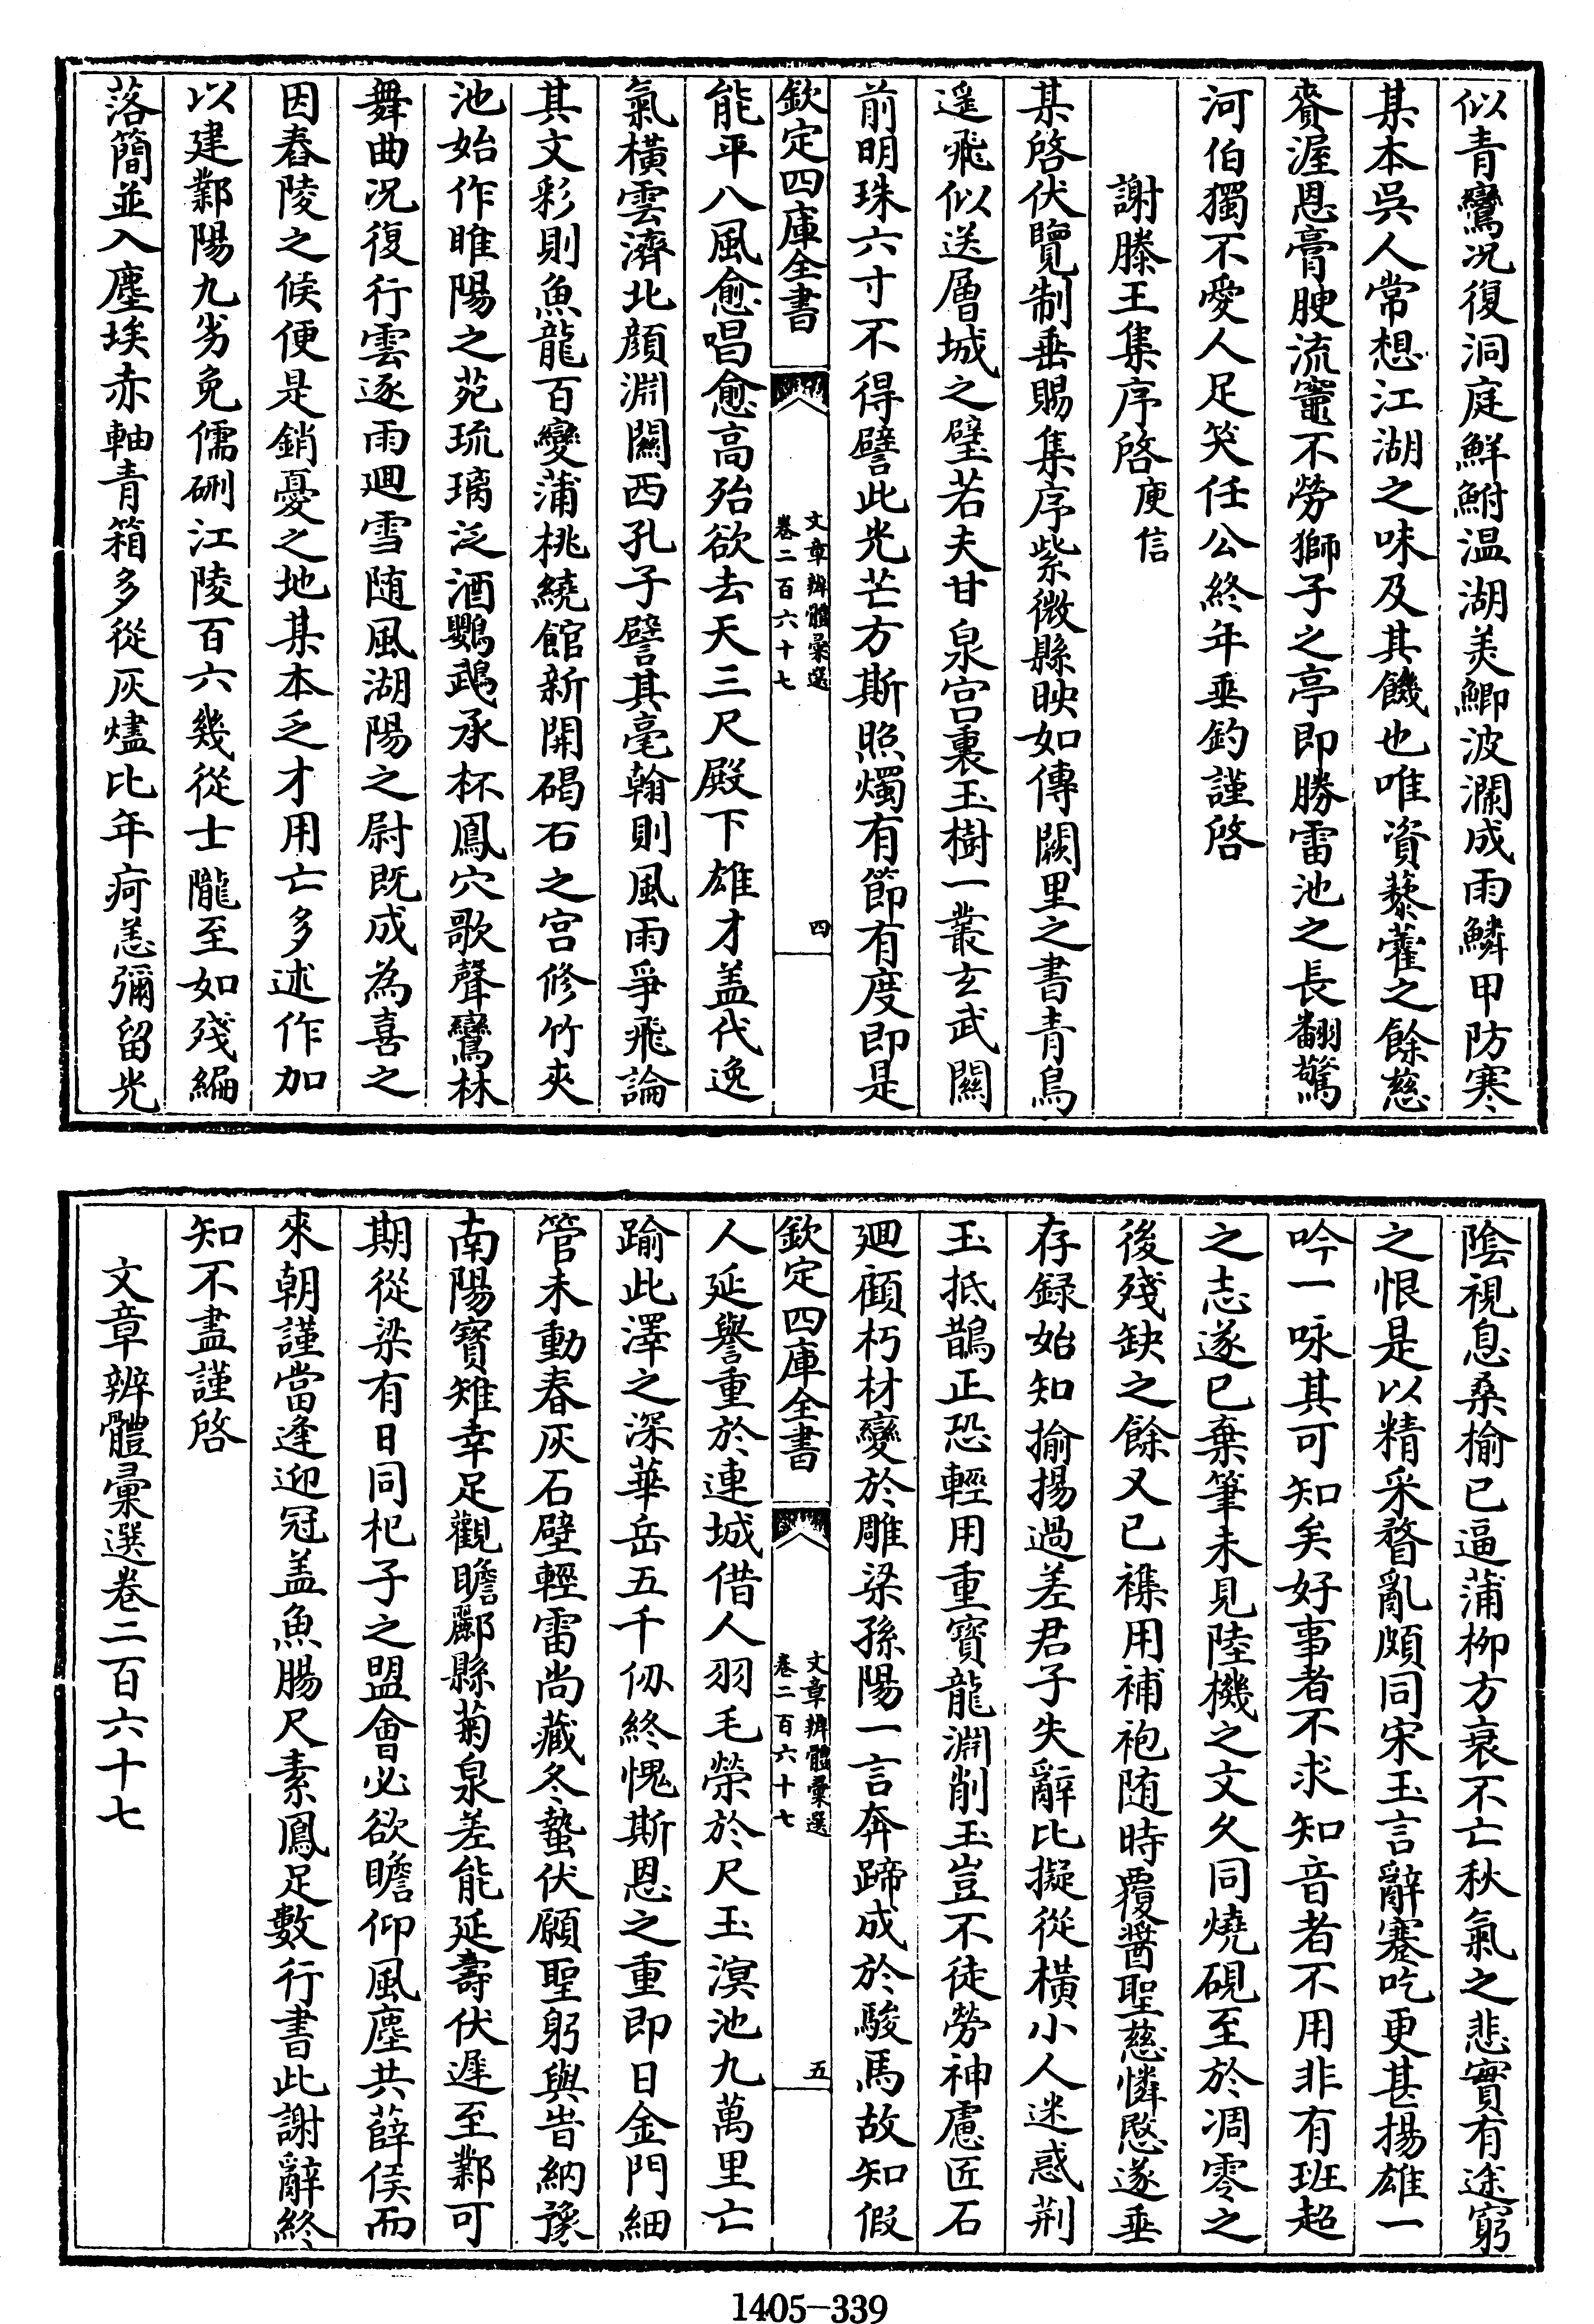 似青鸞况復洞庭鮮鮒温湖美鯽波瀾成雨鱗甲防寒
某本吳人常想江湖之味及其饑也唯資藜藿之餘慈
賚渥恩膏腴流竈不勞獅子之亭即勝雷池之長翻驚
河伯獨不愛人足笑任公終年垂釣謹啓
謝滕王集序啓 庾信
某啓伏覽制垂賜集序紫微縣映如傳闕里之書青鳥
遥飛似送層城之璧若夫甘泉宫裏玉樹一叢玄武闕
前明珠六寸不得譬此光芒方斯照燭有節有度即是
欽定四庫全書
文章辨體彙選
卷二百六十七
四
能平八風愈唱愈高殆欲去天三尺殿下雄才盖代逸
氣横雲濟北顔淵闗西孔子譬其毫翰則風雨爭飛論
其文彩則魚龍百變蒲桃繞館新開碣石之宫修竹夾
池始作睢陽之苑琉璃泛酒鸚鵡承杯鳳穴歌聲鸞林
舞曲况復行雲逐雨迴雪随風湖陽之尉既成為喜之
因舂陵之侯便是銷憂之地某本乏才用亡多述作加
以建鄴陽九劣免儒硎江陵百六幾從士隴至如殘編
落簡並入塵埃赤軸青箱多從灰燼比年疴恙彌留光
陰視息桑榆已逼蒲柳方衰不亡秋氣之悲實有途窮
之恨是以精采瞀亂頗同宋玉言辭蹇吃更甚揚雄一
吟一咏其可知矣好事者不求知音者不用非有班超
之志遂已棄筆未見陸機之文久同燒硯至於凋零之
後殘缺之餘又已襍用補袍随時覆醤聖慈憐愍遂垂
存録始知揄揚過差君子失辭比擬從横小人迷惑荆
玉抵鵲正恐輕用重寳龍淵削玉豈不徒勞神慮匠石
迴顧朽材變於雕梁孫陽一言奔蹄成於駿馬故知假
欽定四庫全書
文章辨體彙選
卷二百六十七
五
人延譽重於連城借人羽毛榮於尺玉溟池九萬里亡
踰此澤之深華岳五千仭終愧斯恩之重即日金門細
管未動春灰石壁輕雷尚藏冬蟄伏願聖躬與旹納豫
南陽寳雉幸足觀瞻酈縣菊泉差能延壽伏遲至鄴可
期從梁有日同杞子之盟會必欲瞻仰風塵共薛侯而
來朝謹當逢迎冠盖魚腸尺素鳳足數行書此謝辭終
知不盡謹啓
文章辨體彙選卷二百六十七
1405-339